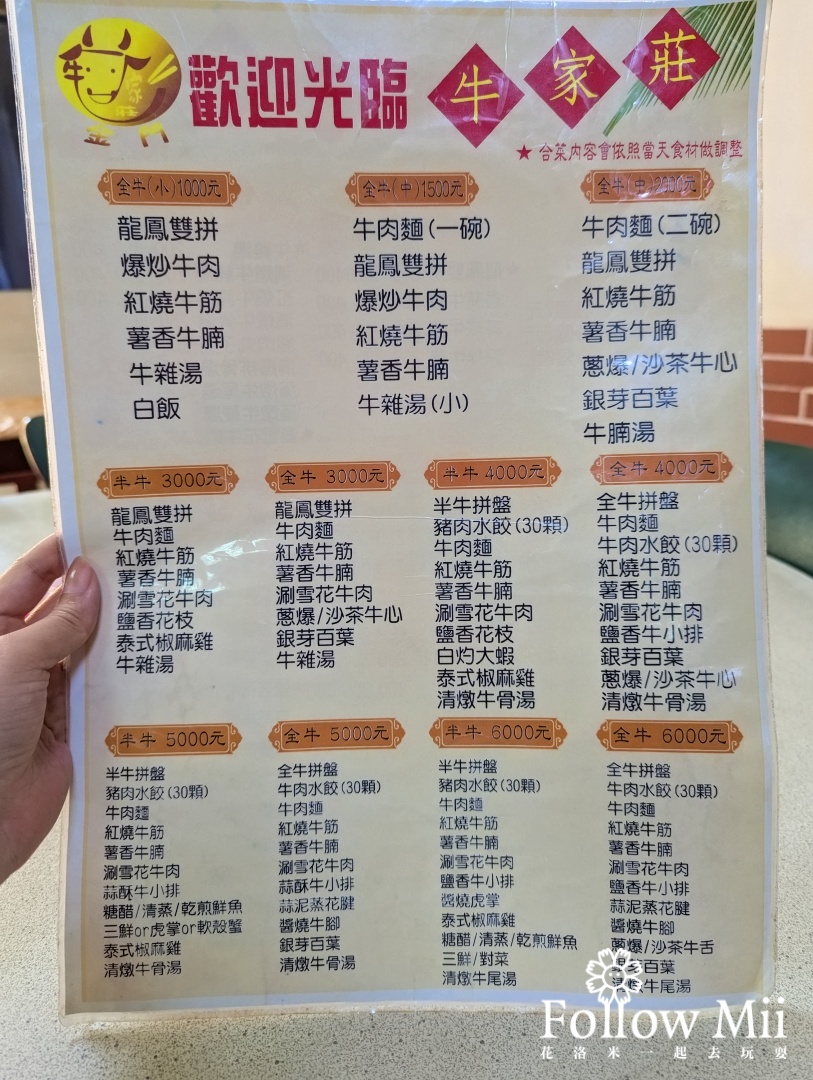 牛
莊
金
歡迎光臨
牛家莊
★ 合菜內容會依照當天食材做調整
全牛(小)1000元
龍鳳雙拼
爆炒牛肉
紅燒牛筋
薯香牛腩
牛雜湯
白飯
全牛(中)1500元
牛肉麵(一碗)
龍鳳雙拼
爆炒牛肉
紅燒牛筋
薯香牛腩
牛雜湯(小)
全牛(中)2000元
牛肉麵(二碗)
龍鳳雙拼
紅燒牛筋
薯香牛腩
蔥爆/沙茶牛心
銀芽百葉
牛腩湯
半牛 3000元
龍鳳雙拼
牛肉麵
紅燒牛筋
薯香牛腩
涮雪花牛肉
鹽香花枝
泰式椒麻雞
牛雜湯
全牛 3000元
龍鳳雙拼
牛肉麵
紅燒牛筋
薯香牛腩
涮雪花牛肉
蔥爆/沙茶牛心
銀芽百葉
牛雜湯
半牛 4000元
半牛拼盤
豬肉水餃(30顆)
牛肉麵
紅燒牛筋
薯香牛腩
涮雪花牛肉
鹽香花枝
白灼大蝦
泰式椒麻雞
清燉牛骨湯
全牛 4000元
全牛拼盤
牛肉麵
牛肉水餃(30顆)
紅燒牛筋
薯香牛腩
涮雪花牛肉
鹽香牛小排
銀芽百葉
蔥爆/沙茶牛心
清燉牛骨湯
半牛 5000元
半牛拼盤
豬肉水餃(30顆)
牛肉麵
紅燒牛筋
薯香牛腩
涮雪花牛肉
蒜酥牛小排
糖醋/清蒸/乾煎鮮魚
三鮮or虎掌or軟殼蟹
泰式椒麻雞
清燉牛骨湯
全牛 5000元
全牛拼盤
牛肉水餃(30顆)
牛肉麵
紅燒牛筋
薯香牛腩
涮雪花牛肉
蒜酥牛小排
蒜泥蒸花腱
醬燒牛腳
銀芽百葉
清燉牛骨湯
半牛 6000元
半牛拼盤
豬肉水餃(30顆)
牛肉麵
紅燒牛筋
薯香牛腩
涮雪花牛肉
鹽香牛小排
醬燒虎掌
泰式椒麻雞
糖醋/清蒸/乾煎鮮魚
三鮮/對菜
清燉牛尾湯
全牛 6000元
全牛拼盤
牛肉水餃(30顆)
牛肉麵
紅燒牛筋
薯香牛腩
涮雪花牛肉
鹽香牛小排
蒜泥蒸花腱
醬燒牛腳
蔥爆/沙茶牛舌
銀芽百葉
清燉牛尾湯
Follow Mii
花洛米一起去玩耍